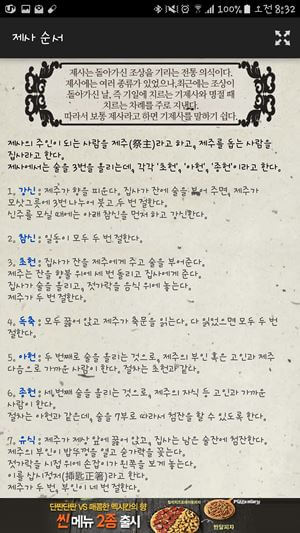 100% 오전 8:32
제사 순서
제사는 돌아가신 조상을 기리는 전통 의식이다.
제사에는 여러 종류가 있었으나,최근에는 조상이
돌아가신 날, 즉 기일에 치르는 기제사와 명절 때
치르는 차례를 주로 지낸다.
따라서 보통 제사라고 하면 기제사를 말하기 쉽다.
제사의 주인이 되는 사람을 제주(祭主)라고 하고, 제주를 돕는 사람을
집사라고 한다.
제사에서는 술을 3번을 올리는데, 각각 '초헌', '아헌', '종헌'이라고 한다.
1. 강신 : 제주가 향을 피운다. 집사가 잔에 술을 부어 주면, 제주가
모삿그릇에 3번 나누어 붓고 두 번 절한다.
신주를 모실 때에는 아래 참신을 먼저 하고 강신한다.
2. 참신 : 일동이 모두 두 번 절한다.
3. 초헌 : 집사가 잔을 제주에게 주고 술을 부어준다.
제주는 잔을 향불 위에 세 번 돌리고 집사에게 준다.
집사가 술을 올리고, 젓가락을 음식 위에 놓는다.
제주가 두 번 절한다.
4. 독축 : 모두 꿇어 앉고 제주가 축문을 읽는다. 다 읽었으면 모두 두 번
절한다.
5. 아헌 : 두 번째로 술을 올리는 것으로, 제주의 부인 혹은 고인과 제주
다음으로 가까운 사람이 한다. 절차는 초헌과 같다.
6. 종헌 : 세 번째 술을 올리는 것으로, 제주의 자식 등 고인과 가까운
사람이 한다.
절차는 아헌과 같은데, 술을 7부로 따라서 첨잔을 할 수 있도록 한다.
7. 유식 : 제주가 제상 앞에 꿇어 앉고, 집사는 남은 술잔에 첨잔한다.
제주의 부인이 밥뚜껑을 열고 숟가락을 꽂는다.
젓가락을 시접 위에 손잡이가 왼쪽을 보게 놓는다.
이를 삽시정저(揷匙正箸)라고 한다.
제주가 두 번, 부인이 네 번 절한다.
단짠단짠 VS 매콤한 멕시칸의 향
씬메뉴 2종 출시
반달피자